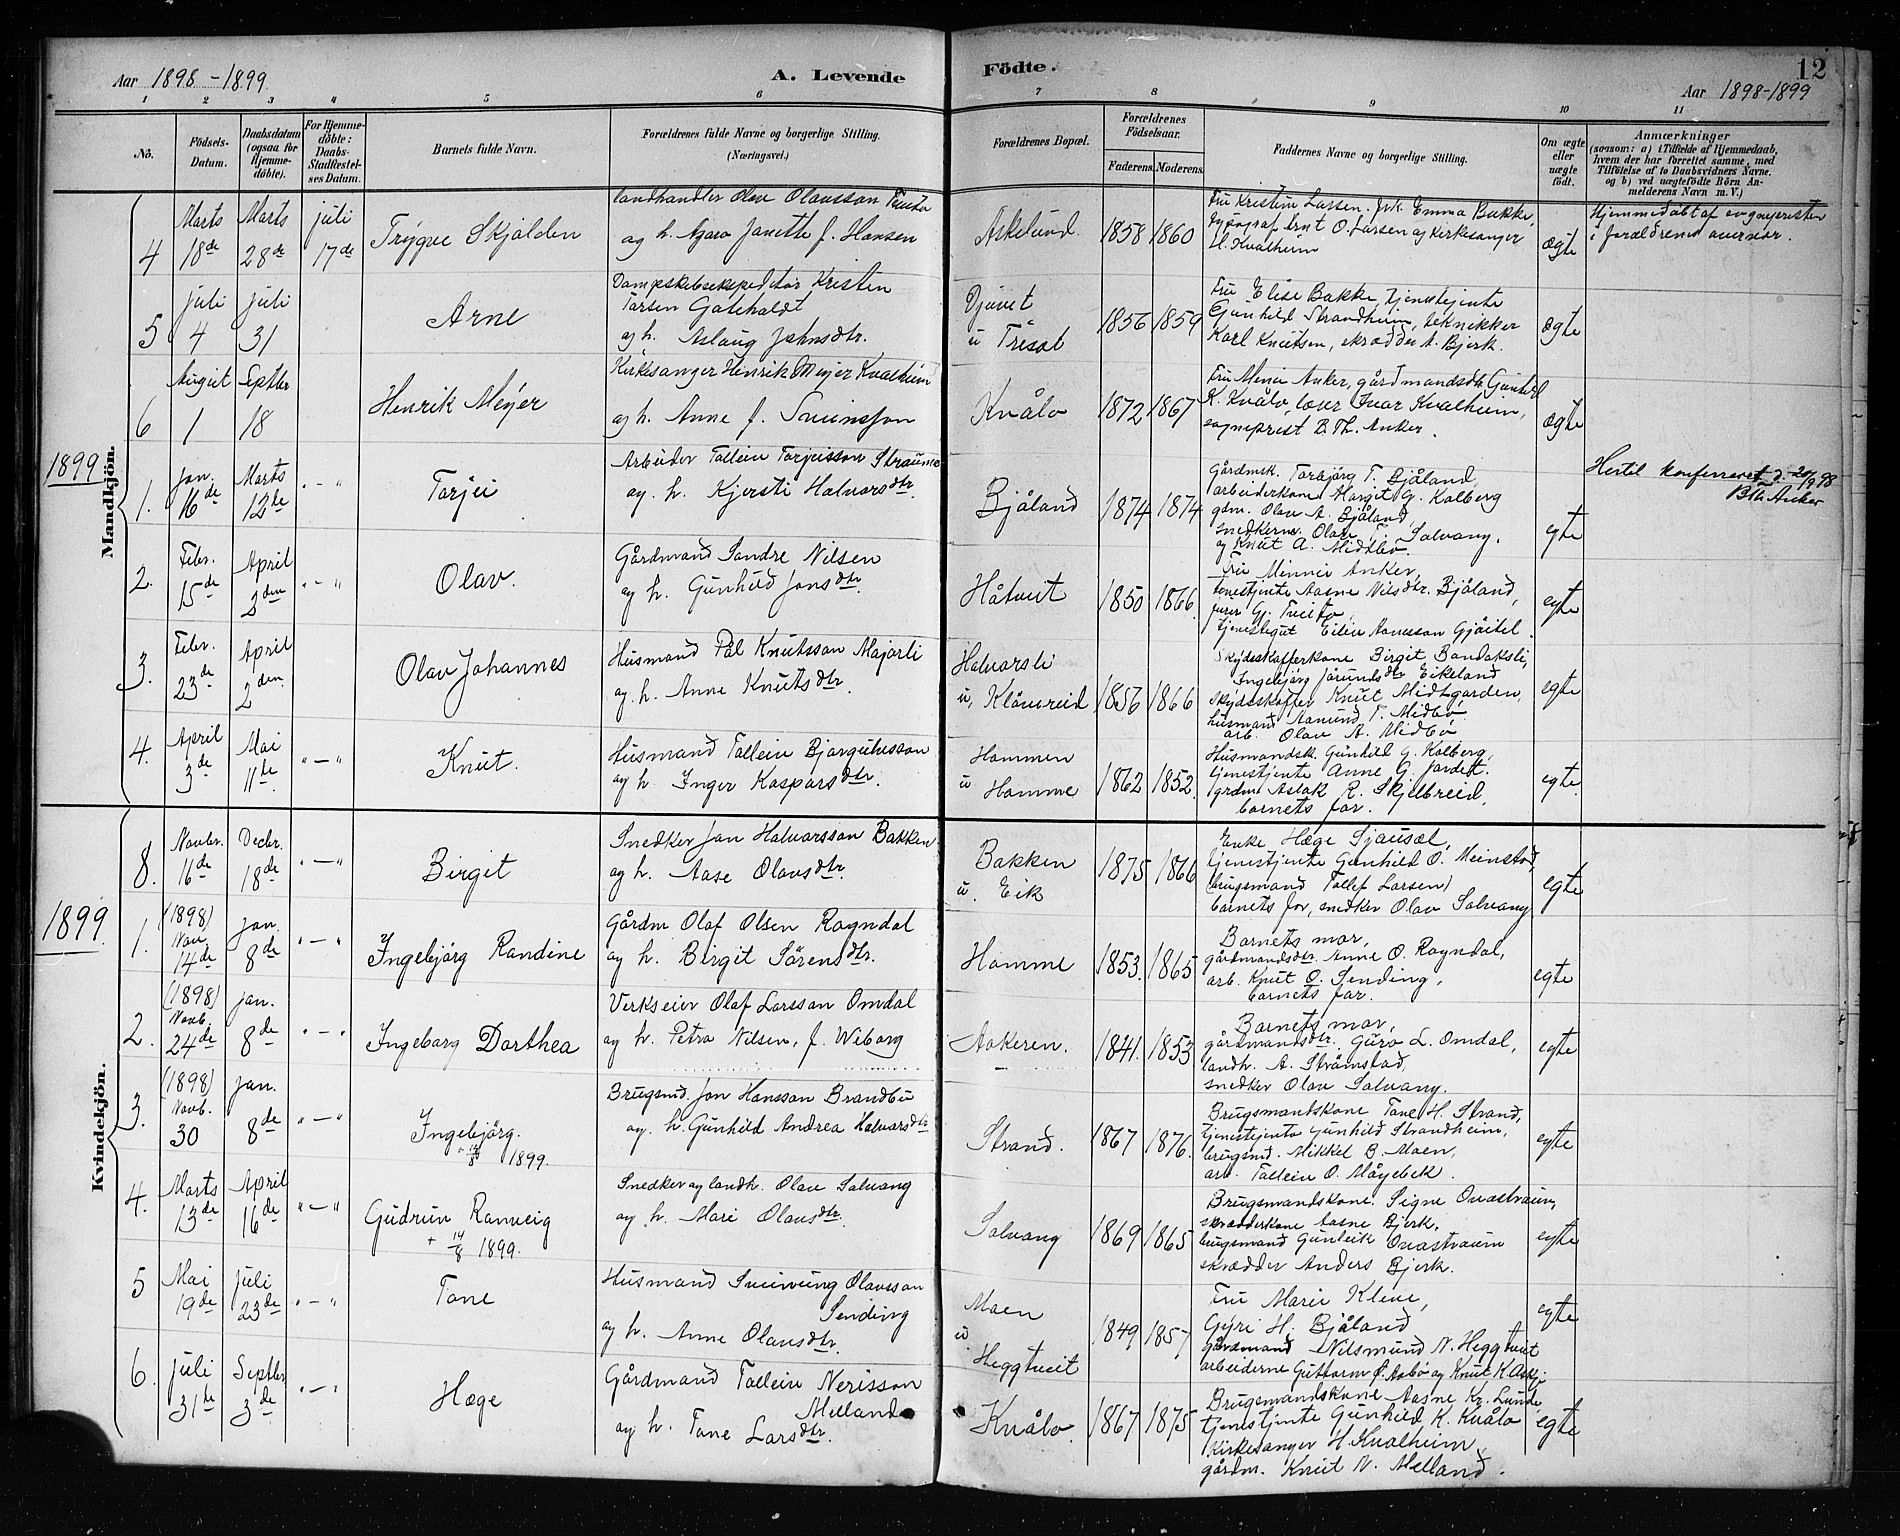 Aar 1898-1899. A. Levende Födte. 12
Aar 1898-1899
1 2 3 4 5 6 7 8 9 10 11
No.
Födsels-Datum.
Daabsdatum (ogsaa for Hjemmedöbte).
For Hjemmedöbte: Daabs-Stadfestelses Datum.
Barnets fulde Navn.
Forældrenes fulde Navne og borgerlige Stilling.
(Næringsvei.)
Forældrenes Bopæl.
Forældrenes Födselsaar.
Faderens. Moderens.
Faddernes Navne og borgerlige Stilling.
Om ægte eller uægte födt.
Anmærkninger
(saasom: a) i Tilfælde af Hjemmedaab,
hvem der har forrettet samme, med
Tilföielse af to Daabsvidners Navne.
og b) ved uægtefödte Börn An-
melderens Navn m. V.)
Mandkjön.
4 Marts 18de Marts 28de juli 17de Trygve Skjalden
landhandler Olav Olavsson
og h. Janette f. Hansen
Askelund. 1858 1860
Fru Kristine Larsen, frk. Emma Bakke,
O. Larsen og kirkesanger
H. Kvalheim
ægte
Hjemmedöbt af sognepresten
i forældrenes nærvær.
5 juli 4 juli 31 Arne
Dampskibsekspeditör Kristen
Tarsen
og h. Aslaug Johnsdtr.
Djuvet
u Triset
1856 1859
Fru Elise Bakke, tjenestejente
Gunhild Strandheim, teknikker
Karl Knutsen, skrædder A. Bjerk.
ægte
6 August 1 Septber 18 Henrik Meyer
Kirkesanger Henrik Meyer Kvalheim
og h. Anne f.
Kvålo 1872 1867
Fru Minnie Anker, gårdmandsdtr Gunhild
K. Kvålo, lærer Ivar Kvalheim,
sogneprest B. Th. Anker.
ægte
1899
1. Jan. 16de Marts 12te " - " Tarjei
Arbeider Tallein Tarjeisson Straume
og h. Kjersti Halvorsdtr.
Bjåland 1874 1874
Gårdmsk. Torbjörg T. Bjåland,
arbeiderkone Margit G. Kolberg
gdm. Olav A. Bjåland,
snedkerne Olav T. Salvang.
og Knut A. Midtbö.
egte
Hertil konfereret d. 20/9 98
B Th. Anker
2. Febr. 15de April 2den " - " Olav.
Gårdmand Sondre Nilsen
og h. Gunhild Jonsdtr.
Håtveit 1850 1866
Fru Minnie Anker,
tjenestjente Aasne Nilsdtr. Bjåland,
furer Gj. Tveito,
tjenestegut Gjöitil.
egte
3. Febr. 23de April 2den. Olav Johannes
Husmand Pål Knutsson Majorli
og h. Anne Knutsdtr.
Halvorsli
u. Klåvreid
1856 1866
Skydsskafferkone Birgit Bandaksli,
Ingebjörg Jörundsdtr Eikeland
skydsskaffer Knut Midtgarden,
husmand Aamund T. Midbö
arb. Olav A. Midbö
egte
4. April 3de Mai 11te " - " Knut.
Husmand Tallein Bjorgulvsson
og h. Inger Kasparsdtr.
Hommen
u Homme
1862 1852
Husmandsk. Gunhild G. Kolberg,
tjenestjente Anne G. Jordett.
grdm Aslak R. Skjelbreid,
barnets far.
egte
Kvindekjön.
8. Novbr. 16de Decbr. 18de " - " Birgit
Snedker Jon Halvorsson Bakken
og h. Aase Olavsdtr.
Bakken
u. Eik
1875 1866
Enke Hæge Sjausæt,
tjenestjente Gunhild O. Meinstad,
(brugsmand Tollef Larsen)
barnets for, snedker Olav Salvang
egte
1899.
1. (1898) Nov. 14de jan. 8de " - " Ingebjörg Randine
Gårdm Olaf Olsen Rogndal
og h. Birgit Sörensdtr.
Homme 1853. 1865
Barnets mor,
gårdmandsdtr. Anne O. Rogndal,
arb. Knut O. Sending,
barnets far.
egte
2. (1898) Novb. 24de jan. 8de " - " Ingeborg Dorthea
Verkseier Olaf Larsson Omdal
og h. Petra Nilsen, f. Wiborg
Aakeren. 1841. 1853
Barnets mor,
gårdmandsdtr. Guro L. Omdal,
landh. A. Strömstad,
snedker Olav Salvang.
egte
3. (1898) Novb. 30 jan. 8de " - " Ingebjörg.
1899.
Brugsmd. Jon Hansson Brandbu
og h. Gunhild Andrea Halvorsdtr
Strand. 1867 1876.
Brugsmandskone Tone H. Strand,
tjenestjente Gunhild Strandheim,
brugsmd. Mikkel B. Moen,
arb. Tallein O. Möyebek.
egte
4. Marts 13de April 16de " - " Gudrun Ranveig
+ 14/8 1899.
Snedker og landh. Olav Salvang
og h. Mari Olavsdtr.
Salvang 1869 1865
Brugsmandskone. Signe Ovastraum,
skrædderkone Aasne Bjerk,
brugsmand Gunleik Ovastraum
skrædder Anders Bjerk.
egte
5 Mai 19de Juli 23de " - " Tone
Husmand Sveinung Olavsson
Sending
og h. Anne Olavsdtr.
Moen
u. Heggtveit
1849 1857
Fru Marie Kleve,
Gyri H. Bjåland
gårdmand Nilsmund N. Heggtveit
arbeiderne Guttorm
egte
6. juli 31te Septbr 3de " - " Hæge
Gårdmand Tallein Nerisson
Melland
og h. Tone Larsdtr.
Kvålo. 1867 1875
Brugsmandskone Aasne Kr. Lunde,
tjenestjente Gunhild K. Kvålo
Kirkesanger H. Kvalheim
gårdm. Knut N. Melland.
egte